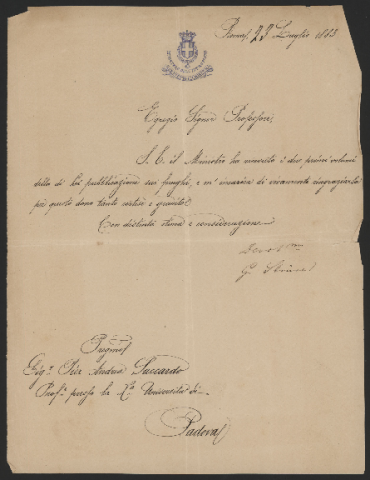 Roma, 23 Luglio 1883
Egregio Signor Professore,
S. E. il Ministro ha ricevuto i due primi volumi
della di Lei pubblicazione sui funghi, e m'incarica di vivamente ringraziarla
per questo dono tanto cortese e gradito.
Con distinta stima e considerazione
Devot.mo
G.
Pregmo
Sigr. Pier Andrea Saccardo
Profe. presso la Ra. Università di
Padova